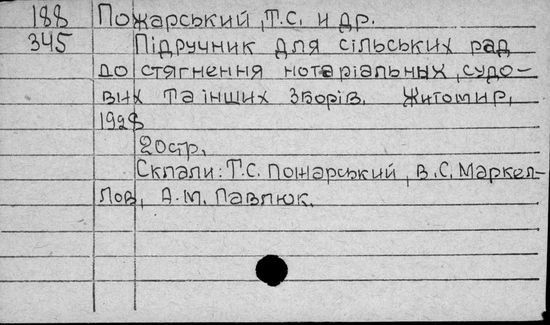 188 Пожарський, Т.С. и др.
345 Підручник для сільських рад
до стягнення нотаріальных, судо-
вих та інших зборів. Житомир,
1928
20стр.
Склали: Т.С. Пожарський, В.С. Маркел-
лов, А.М. Павлюк.